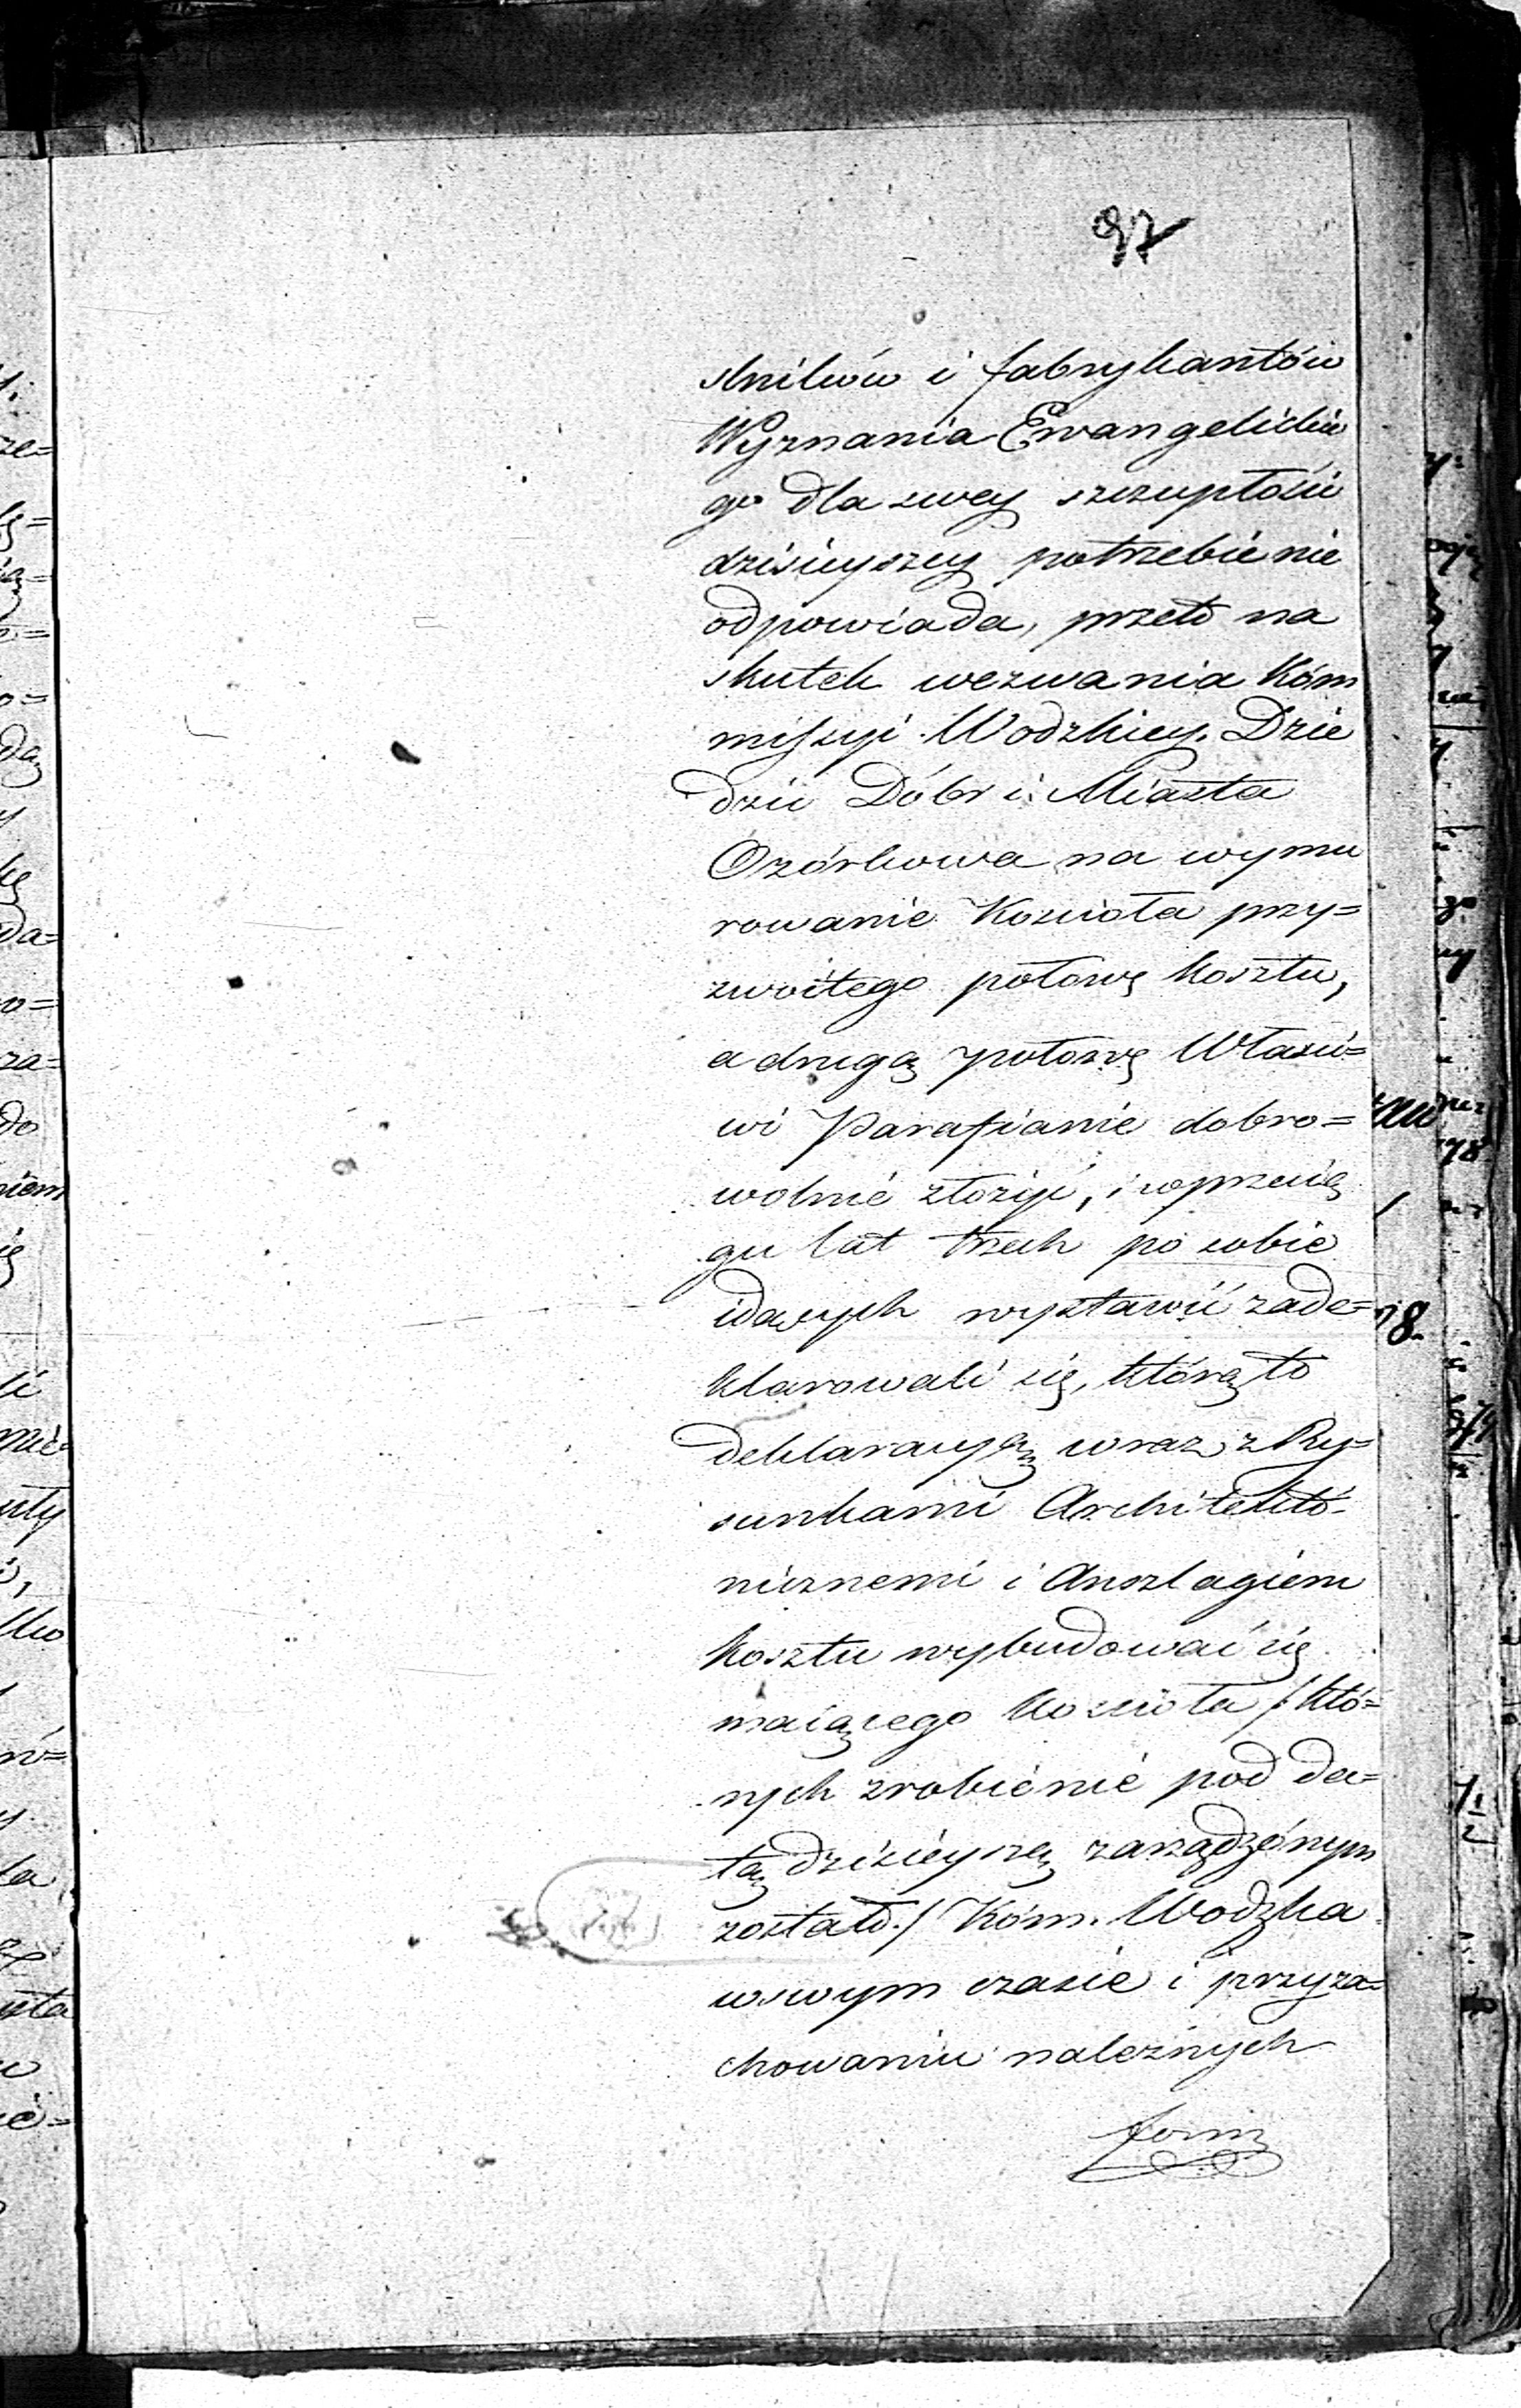 97
ślników i fabrykantów
Wyznania Ewangelickie
go dla swey szczupłości
dzisieyszey potrzebie nie
odpowiada, przeto na
skutek wezwania Kom
missyi Wodzkiey. Dzie
dzic Dóbr i Miasta
Ozórkowa na wymu
rowanie Kościoła przy=
zwoitego połowę kosztu,
a drugą połowę Właści=
wi Parafianie dobro=
wolnie złożyć, i w przecią
gu lat trzech po sobie
idących wystawić zade=
klarowali się, którą to
deklaracyą wraz z Ry=
sunkami Architekto-
nicznemi i Anszlagiem
kosztu wybudować się
maiącego kościoła /: któ=
rych zrobienie pod da=
tą dzisieyszą zarządzonym
zostało./ Kom. Wodzka
w swym czasie i przy za=
chowaniu należnych
form